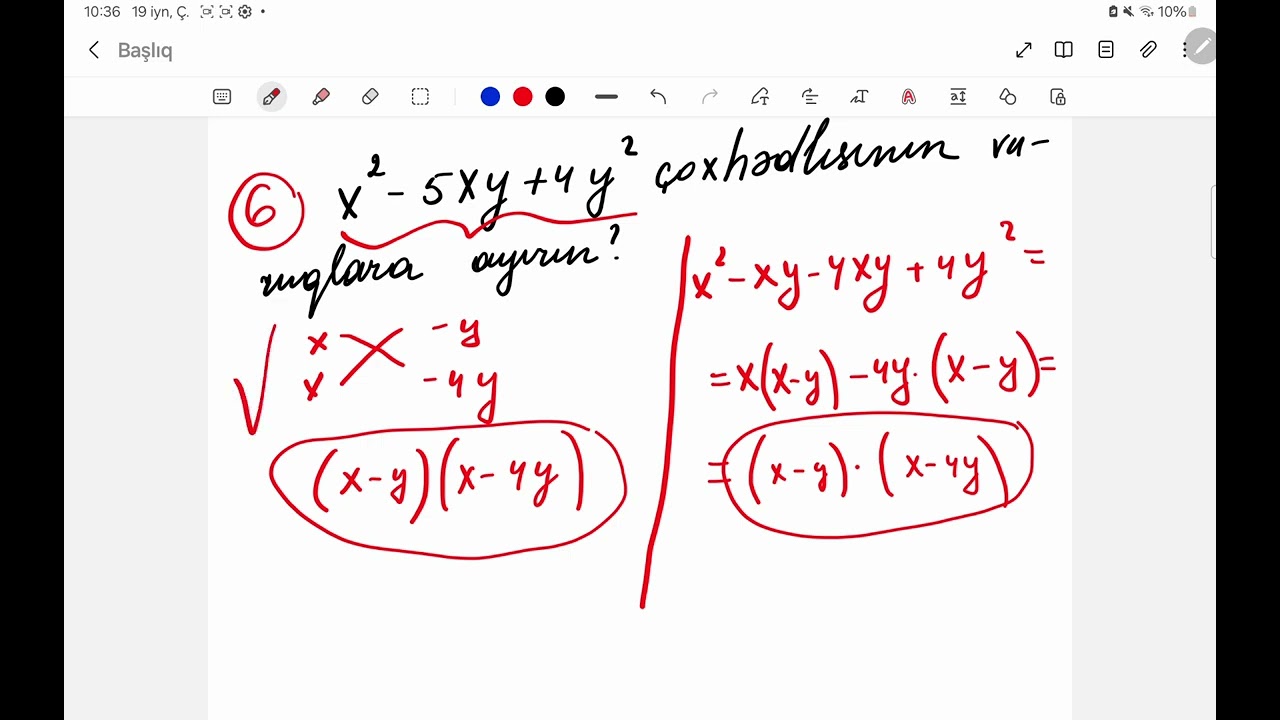 10:36 19 iyn, Ç. 10%
Başlıq
6 x² - 5xy + 4y² çoxhədlisinin vu-
ruqlara ayırın?
x -y
x -4y
(x-y)(x-4y)
x² - xy - 4xy + 4y² =
= x(x-y) - 4y·(x-y) =
= (x-y)·(x-4y)